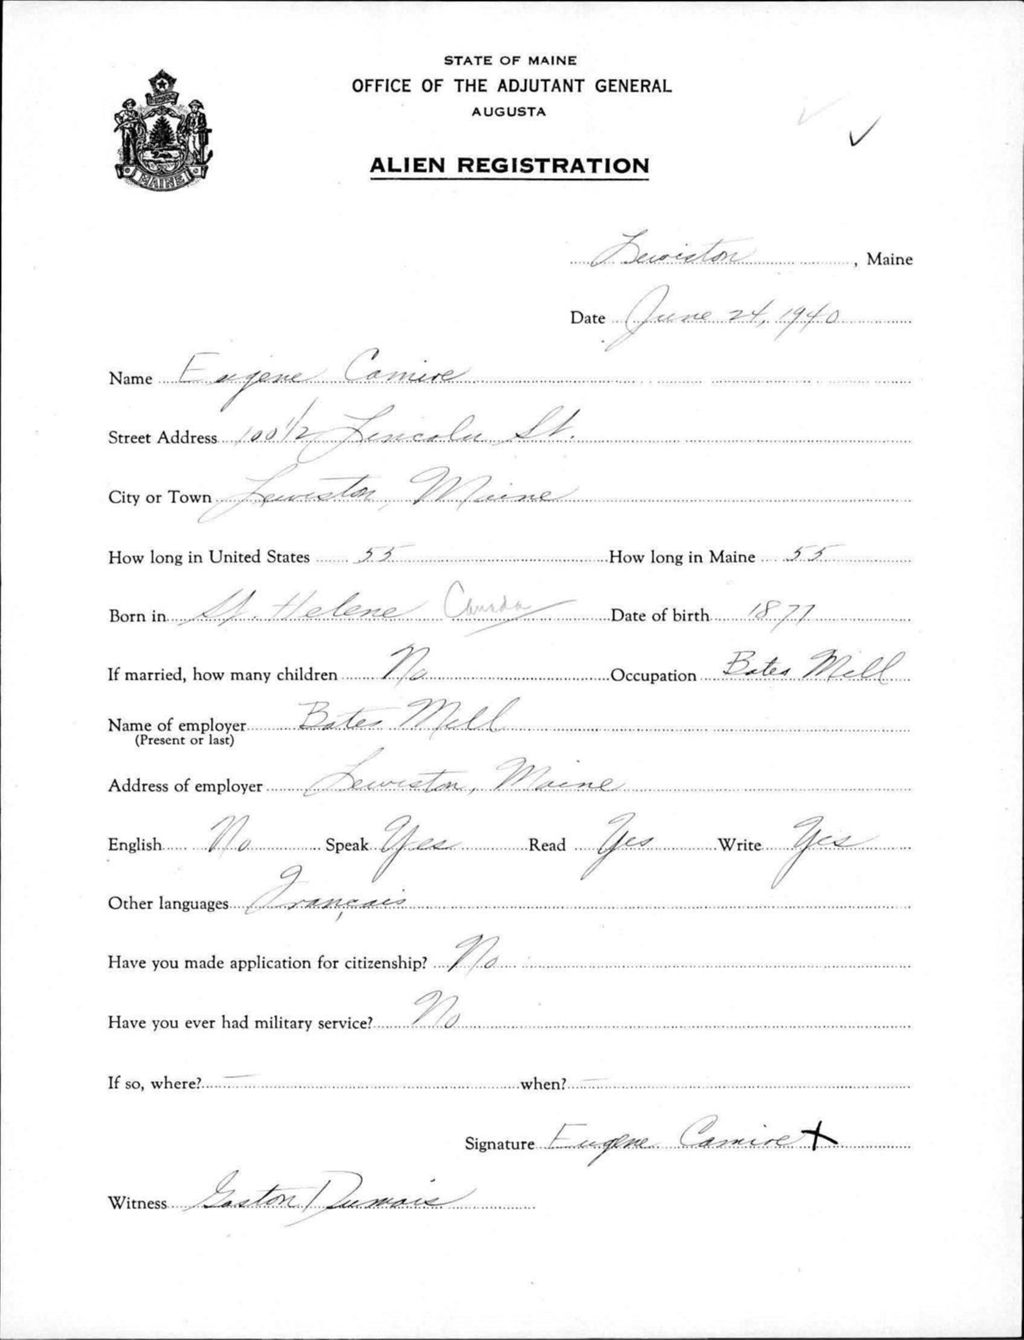 STATE OF MAINE
OFFICE OF THE ADJUTANT GENERAL
AUGUSTA
ALIEN REGISTRATION
MAINE
Lewiston, Maine
Date June 24, 1940
Name Eugene Camire
Street Address 100 1/2 Lincoln St.
City or Town Lewiston, Maine
How long in United States 55 How long in Maine 55
Born in St. Helene Canada Date of birth 1877
If married, how many children No Occupation Bates Mill
Name of employer Bates Mill
(Present or last)
Address of employer Lewiston, Maine
English No Speak Yes Read Yes Write Yes
Other languages Français
Have you made application for citizenship? No
Have you ever had military service? No
If so, where? — when? —
Signature Eugene Camire X
Witness Gaston Dumais